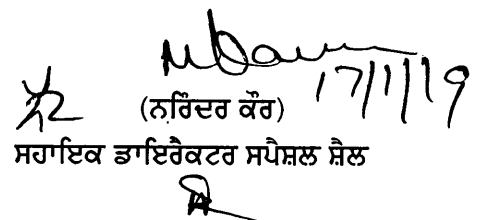 17/1/19
(ਨਰਿੰਦਰ ਕੌਰ)
ਸਹਾਇਕ ਡਾਇਰੈਕਟਰ ਸਪੈਸ਼ਲ ਸ਼ੈਲ